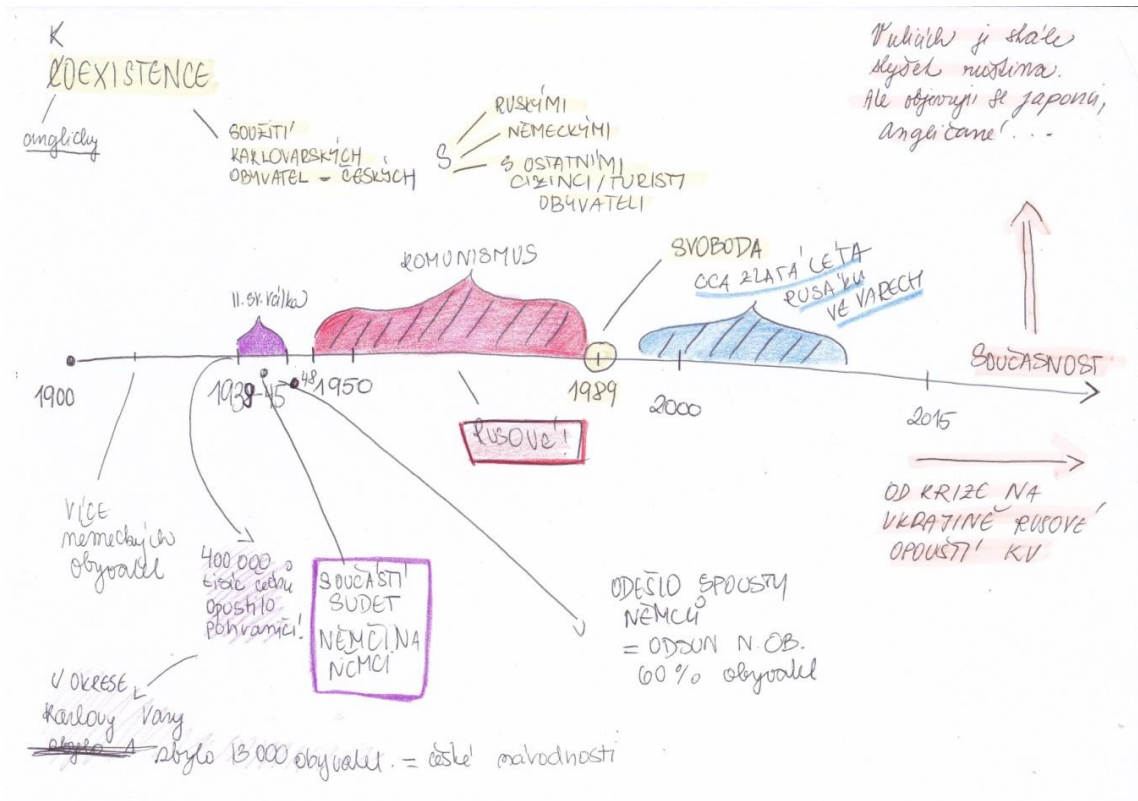 K
COEXISTENCE
anglicky
SOUŽITÍ
KARLOVARSKÝCH
OBYVATEL = ČESKÝCH
S
RUSKÝMI
NĚMECKÝMI
S OSTATNÍMI
CIZINCI / TURISTI
OBYVATELI
V ulicích je stále
slyšet ruština.
Ale objevují se japonci,
angličané! . . .
II. sv. válka
KOMUNISMUS
SVOBODA
CCA ZLATÁ LÉTA
RUSÁKŮ
VE VARECH
SOUČASNOST
1900
1939-45
48
1950
1989
2000
2015
RUSOVÉ!
OD KRIZE NA
UKRAJINĚ RUSOVÉ
OPOUŠTÍ KV
VÍCE
německých
obyvatel
400 000
tisíc čechů
opustilo
pohraničí!
SOUČÁSTÍ
SUDET
NĚMČINA
NĚMCI
ODEŠLO SPOUSTY
NĚMCŮ
= ODSUN N. OB.
60% obyvatel
V OKRESE
Karlovy Vary
zbylo 13 000 obyvatel. = české národnosti